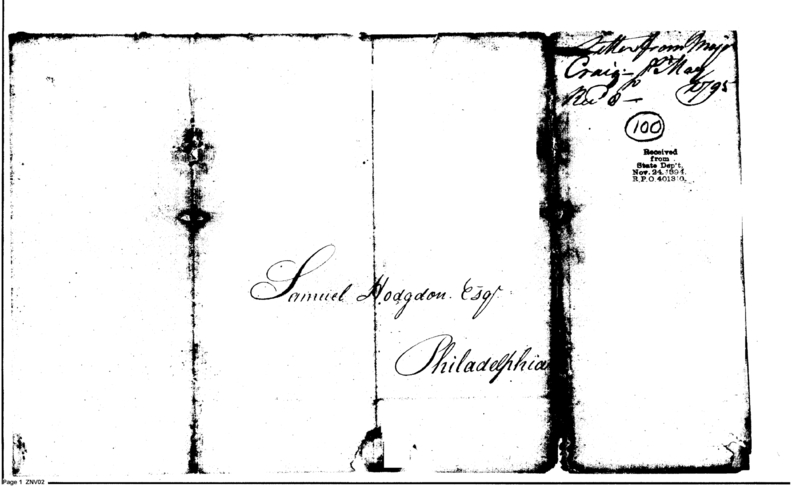 Samuel Hodgdon. Esqr
Philadelphia
Letter from Majr
Craig - May
Rec 8 - 1795
100
Received
from
State Dep't.
Nov. 24, 1894.
R.P.O. 401310.
Page 1 ZNV02